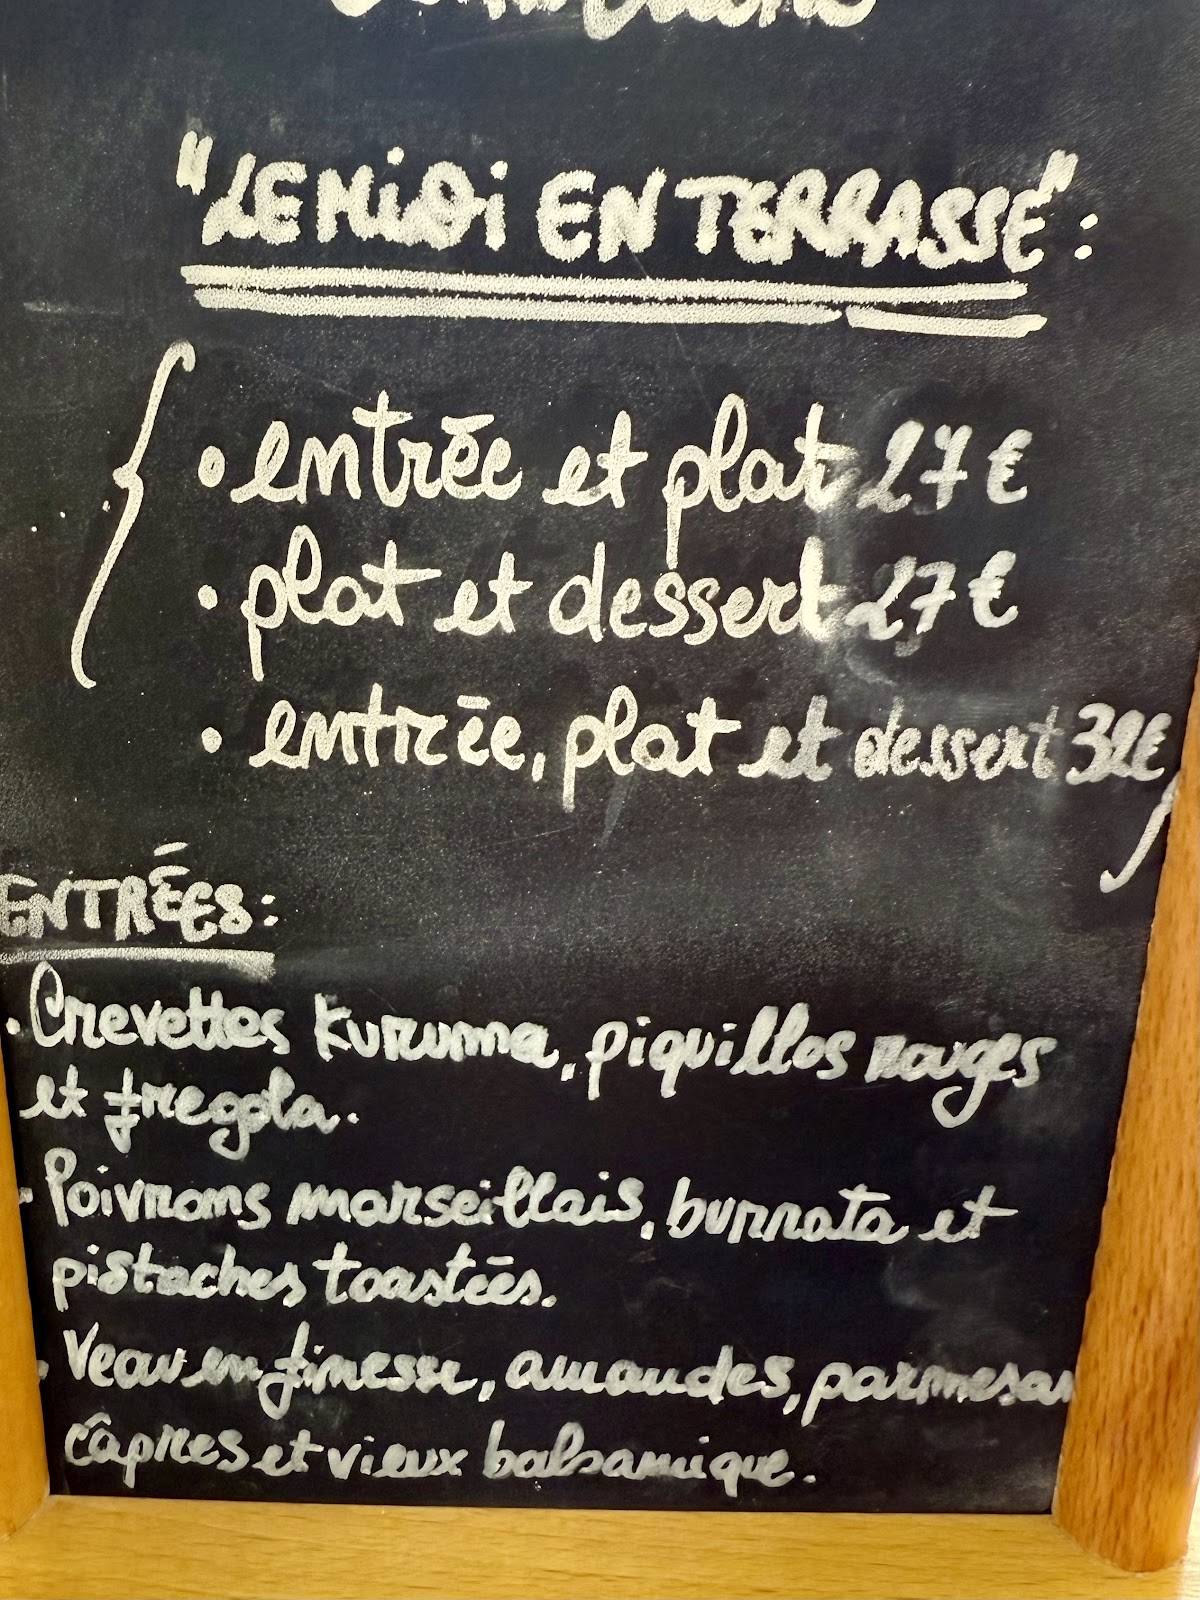 "LE MIDI EN TERRASSE":
• entrée et plat 27€
• plat et dessert 27€
• entrée, plat et dessert 32€
ENTRÉES:
• Crevettes Kuruma, piquillos rouges
et fregola.
• Poivrons marseillais, burrata et
pistaches toastées.
• Veau en finesse, amandes, parmesan
câpres et vieux balsamique.